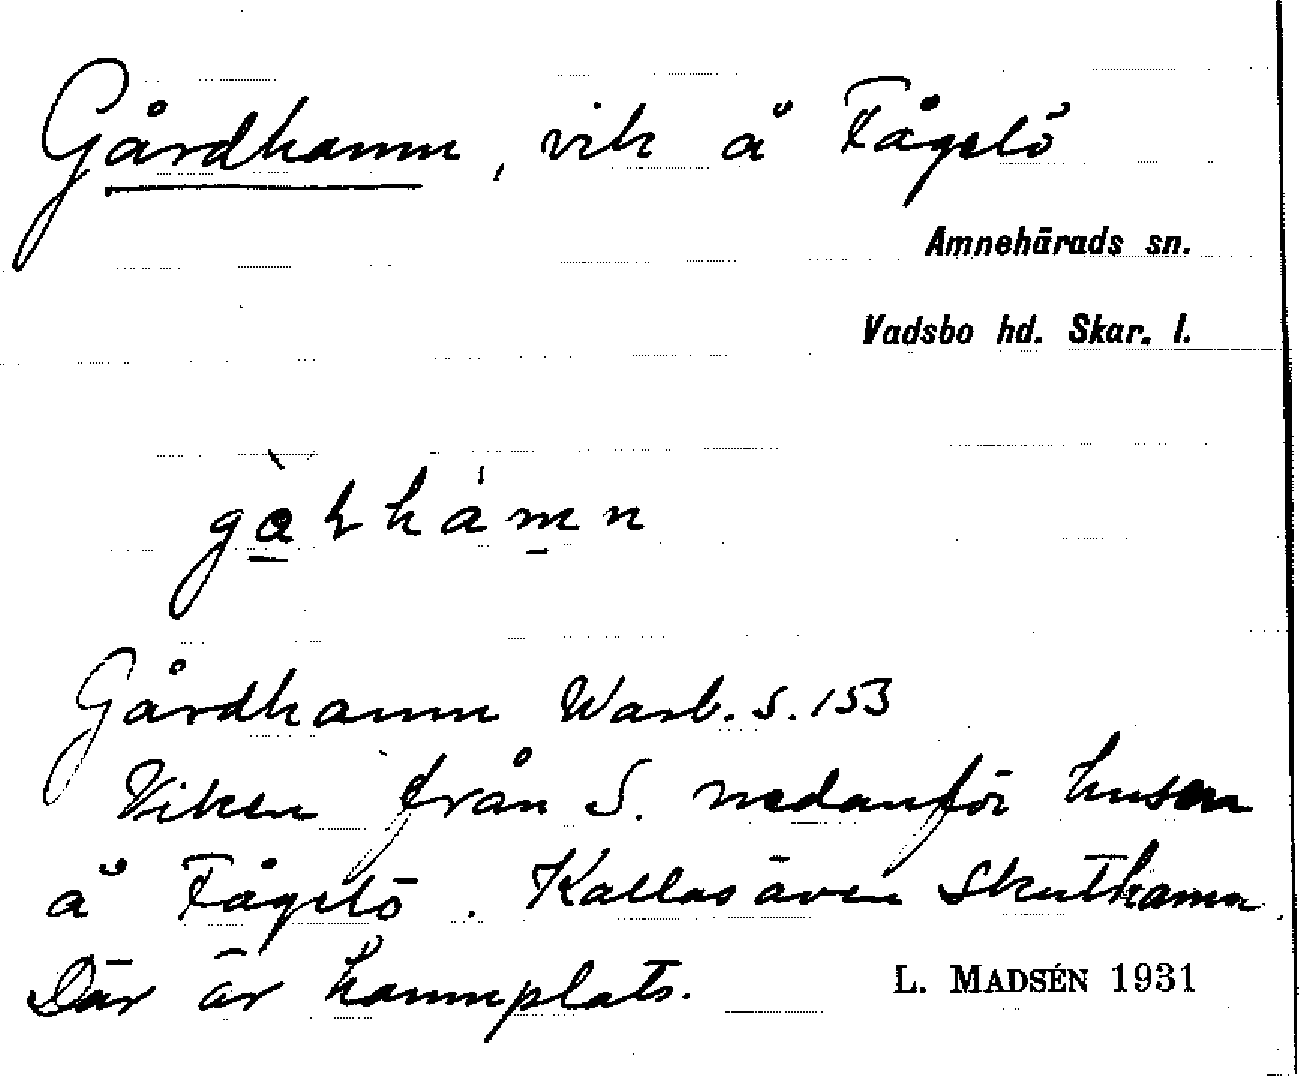 Gårdhamn, vik å Fågelö
Amnehärads sn.
Vadsbo hd. Skar. l.
Gårdhamn Warb. S. 153
Viken från S. nedanför husen
å Fågelö. Kallas även Skuthamn.
Där är hamnplats.
L. MADSÉN 1931